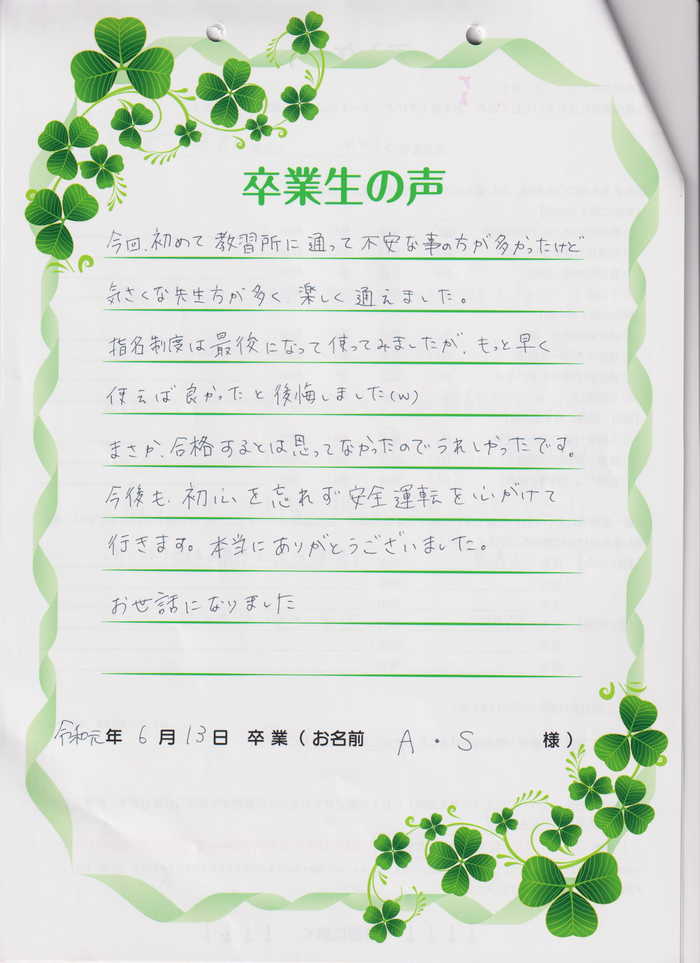 卒業生の声
今回、初めて教習所に通って不安な事の方が多かったけど
気さくな先生方が多く楽しく通えました。
指名制度は最後になって使ってみましたが、もっと早く
使えば良かったと後悔しました(w)
まさか、合格するとは思ってなかったのでうれしかったです。
今後も、初心を忘れず安全運転を心がけて
行きます。本当にありがとうございました。
お世話になりました
令和元年 6月13日 卒業(お名前 A・S 様)